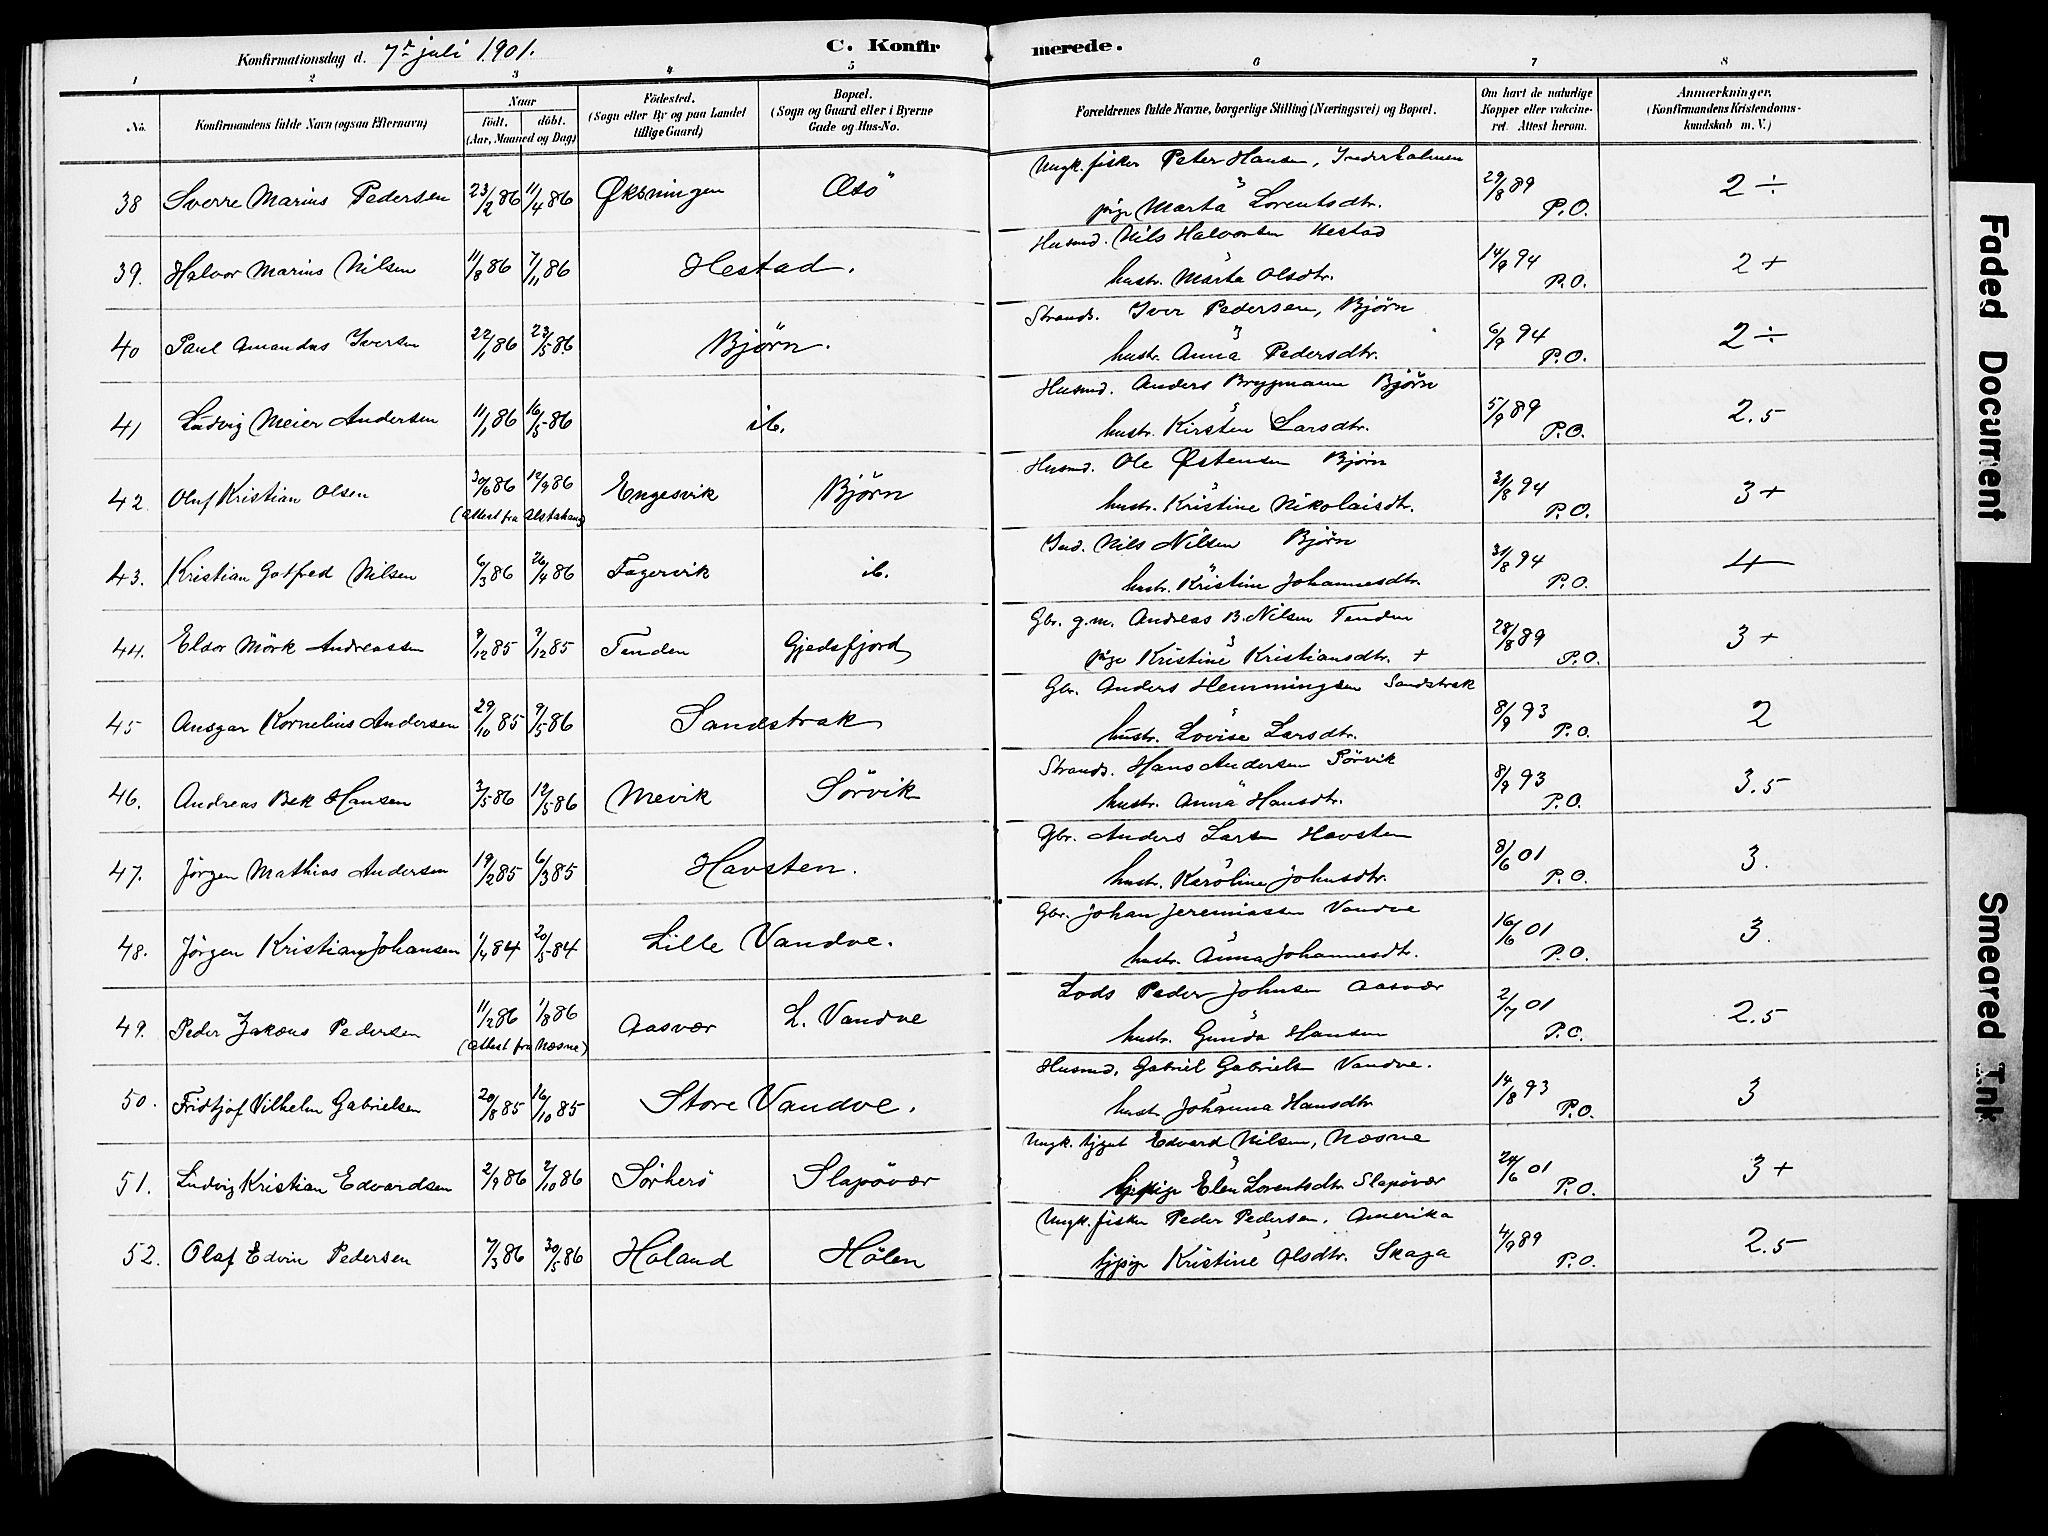 Konfirmationsdag d. 7de juli 1901.
C. Konfirmerede.
1 2 3 4 5 6 7 8
No. Konfirmandens fulde Navn (ogsaa Efternavn) Naar født. døbt. (Aar, Maaned og Dag) Fødested. (Sogn eller By og paa Landet tillige Gaard) Bopæl. (Sogn og Gaard eller i Byerne Gade og Hus-No. Forældrenes fulde Navne, borgerlige Stilling (Næringsvei) og Bopæl. Om havt de naturlige Kopper eller vakcineret. Attest herom. Anmærkninger. (Konfirmandens Kristendomskundskab m. V.)
38 Sverre Marius Pedersen 23/2 86 11/4 86 Øksningen Ulsö Ungk. fisker Peter Hansen, Inderholmen
pige Marta Lorentsdtr. 29/8 89 P.O. 2 ÷
39. Halvor Marius Nilsen 11/8 86 7/11 86 Hestad. Husmd. Nils Halvorsen Hestad
hustr. Marta Olsdtr. 14/9 94 P.O. 2 +
40 Paul Amandus Iversen 22/1 86 23/5 86 Bjørn. Strands. Iver Pedersen, Bjørn
hustr. Anna Pedersdtr. 6/9 94 P.O. 2 ÷
41 Ludvig Meier Andersen 11/1 86 16/5 86 ib. Husmd. Anders Brygmann Bjørn
hustr. Kirsten Larsdtr. 5/9 89 P.O. 2.5
42 Oluf Kristian Olsen 30/6 86 12/9 86 Engesvik Bjørn Husmd. Ole Østensen Bjørn
(Attest fra Alstahaug) hustr. Kristine Nikolaisdtr. 31/8 94 P.O. 3 +
43. Kristian Gotfred Nilsen 6/3 86 26/4 86 Fagervik ib. Ind. Nils Nilsen Bjørn
hustr. Kristine Johannesdtr. 31/8 94 P.O. 4
44. Eldor Mörk Andreassen 9/12 85 9/12 85 Tenden Gjedsfjord Gbr. g.m. Andreas B. Nilsen Tenden
pige Kristine Kristiansdtr. + 28/8 89 P.O. 3 +
45 Ansgar Kornelius Andersen 29/10 85 9/5 86 Sandstrak Gbr. Anders Hemmingsen Sandstrak
hustr. Lovise Larsdtr. 8/9 93 P.O. 2
46. Andreas Bek Hansen 3/5 86 12/5 86 Mevik Sörvik Strands. Hans Andersen Sörvik
hustr. Anna Hansdtr. 8/9 93 P.O. 3.5
47. Jörgen Mathias Andersen 19/2 85 6/3 85 Havsten. Gbr. Anders Larsen Havsten
hustr. Karoline Johnsdtr. 8/6 01 P.O. 3.
48. Jörgen Kristian Johansen 1/4 84 20/5 84 Lille Vandve. Gbr. Johan Jeremiassen Vandve
hustr. Anna Johannesdtr. 16/6 01 P.O. 3.
49. Peder Jakæus Pedersen 11/2 86 1/8 86 Aasvær L. Vandve Lods Peder Johnsen Aasvær
(Attest fra Næsne) hustr. Gunda Hansen 2/7 01 P.O. 2.5
50. Fridtjof Vilhelm Gabrielsen 20/8 85 16/10 85 Store Vandve. Husmd. Gabriel Gabrielsen Vandve.
hustr. Johanna Hansdtr 14/8 93 P.O. 3
51. Ludvig Kristian Edvardsen 2/9 86 2/10 86 Sörherö Slapövær Ungk. tjgut Edvard Nilsen, Næsne
tjpige Elen Lorentsdtr Slapövær 24/6 01 P.O. 3 +
52. Olaf Edvin Pedersen 7/3 86 30/5 86 Holand Hölen Ungk. fisker Peder Pedersen. Amerika
tjpige Kristine Olsdtr. Skaga 4/9 89 P.O. 2.5
Faded Document
Smeared Ink